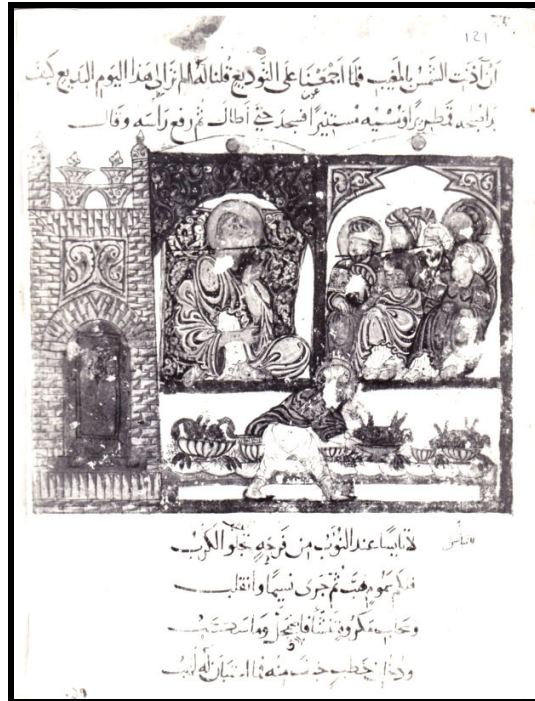 ١٤١
ان آذنت الشمس بالمغيب فلما اجمعنا على التوديع قلنا له الم تر الى هذا اليوم البديع كيف
بدا صبحه قمطريرا ومسيه مستنيرا فسجد حتى اطال ثم رفع راسه وقال
لا تايسا عند النوب من فرجة تجلو الكرب
فلكم سموم هب ثم جرى نسيما وانقلب
وسحاب مكروه تنشا فاضمحل وما سكب
ودخان خطب خيف منه فما استبان له لهب